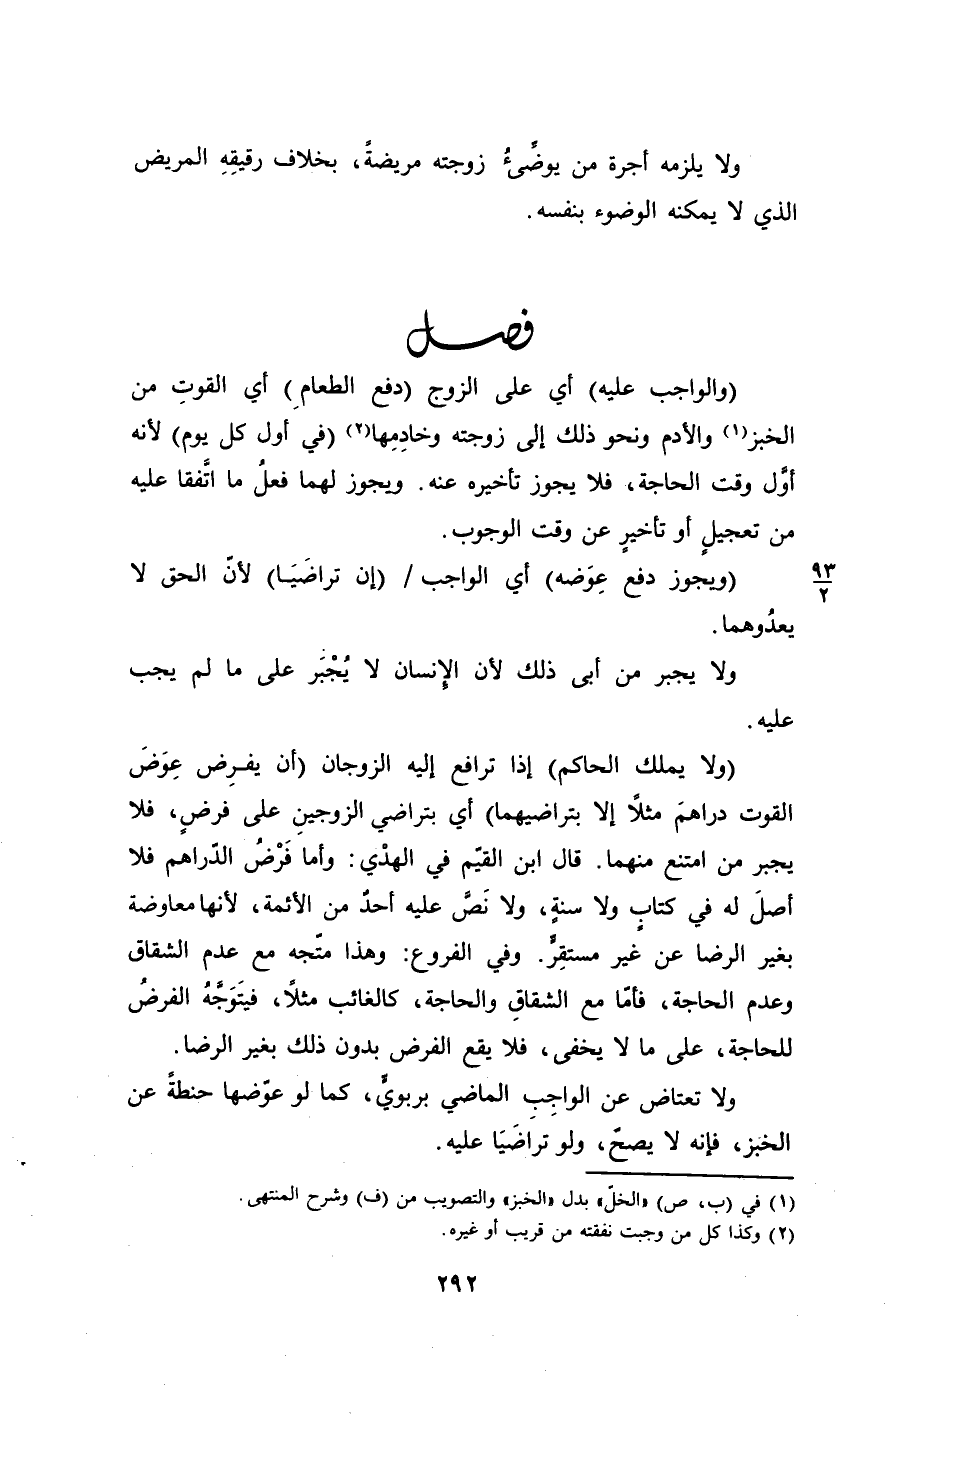 ولا يلزمه أجرة من يوضِّىءُ زوجته مريضةً، بخلاف رقيقِهِ المريض
الذي لا يمكنه الوضوء بنفسه.
فصل
(والواجب عليه) أي على الزوج (دفع الطعامِ) أي القوتِ من
الخبز(١) والأدم ونحو ذلك إلى زوجته وخادِمِها(٢) (في أول كل يوم) لأنه
أوَّل وقت الحاجة، فلا يجوز تأخيره عنه. ويجوز لهما فعلُ ما اتَّفقا عليه
من تعجيلٍ أو تأخيرٍ عن وقت الوجوب.
(ويجوز دفع عِوَضه) أي الواجب / (إن تراضَيَا) لأنّ الحق لا
٩٣
٢
يعدُوهما.
ولا يجبر من أبى ذلك لأن الإنسان لا يُجْبَر على ما لم يجب
عليه.
(ولا يملك الحاكم) إذا ترافع إليه الزوجان (أن يفرِض عِوَضَ
القوت دراهمَ مثلًا إلا بتراضيهما) أي بتراضي الزوجينِ على فرضٍ، فلا
يجبر من امتنع منهما. قال ابن القيّم في الهدْي: وأما فَرْضُ الدّراهم فلا
أصلَ له في كتابٍ ولا سنةٍ، ولا نَصَّ عليه أحدٌ من الأئمة، لأنها معاوضة
بغير الرضا عن غير مستقِرٍّ. وفي الفروع: وهذا متّجه مع عدم الشقاق
وعدم الحاجة، فأمّا مع الشقاقِ والحاجة، كالغائب مثلًا، فيتَوَجَّهُ الفرضُ
للحاجة، على ما لا يخفى، فلا يقع الفرض بدون ذلك بغير الرضا.
ولا تعتاض عن الواجِبِ الماضي بربويٍّ، كما لو عوّضها حنطةً عن
الخبز، فإنه لا يصحّ، ولو تراضَيَا عليه.
(١) في (ب، ص) «الخلّ» بدل «الخبز» والتصويب من (ف) وشرح المنتهى.
(٢) وكذا كل من وجبت نفقته من قريب أو غيره.
٢٩٢